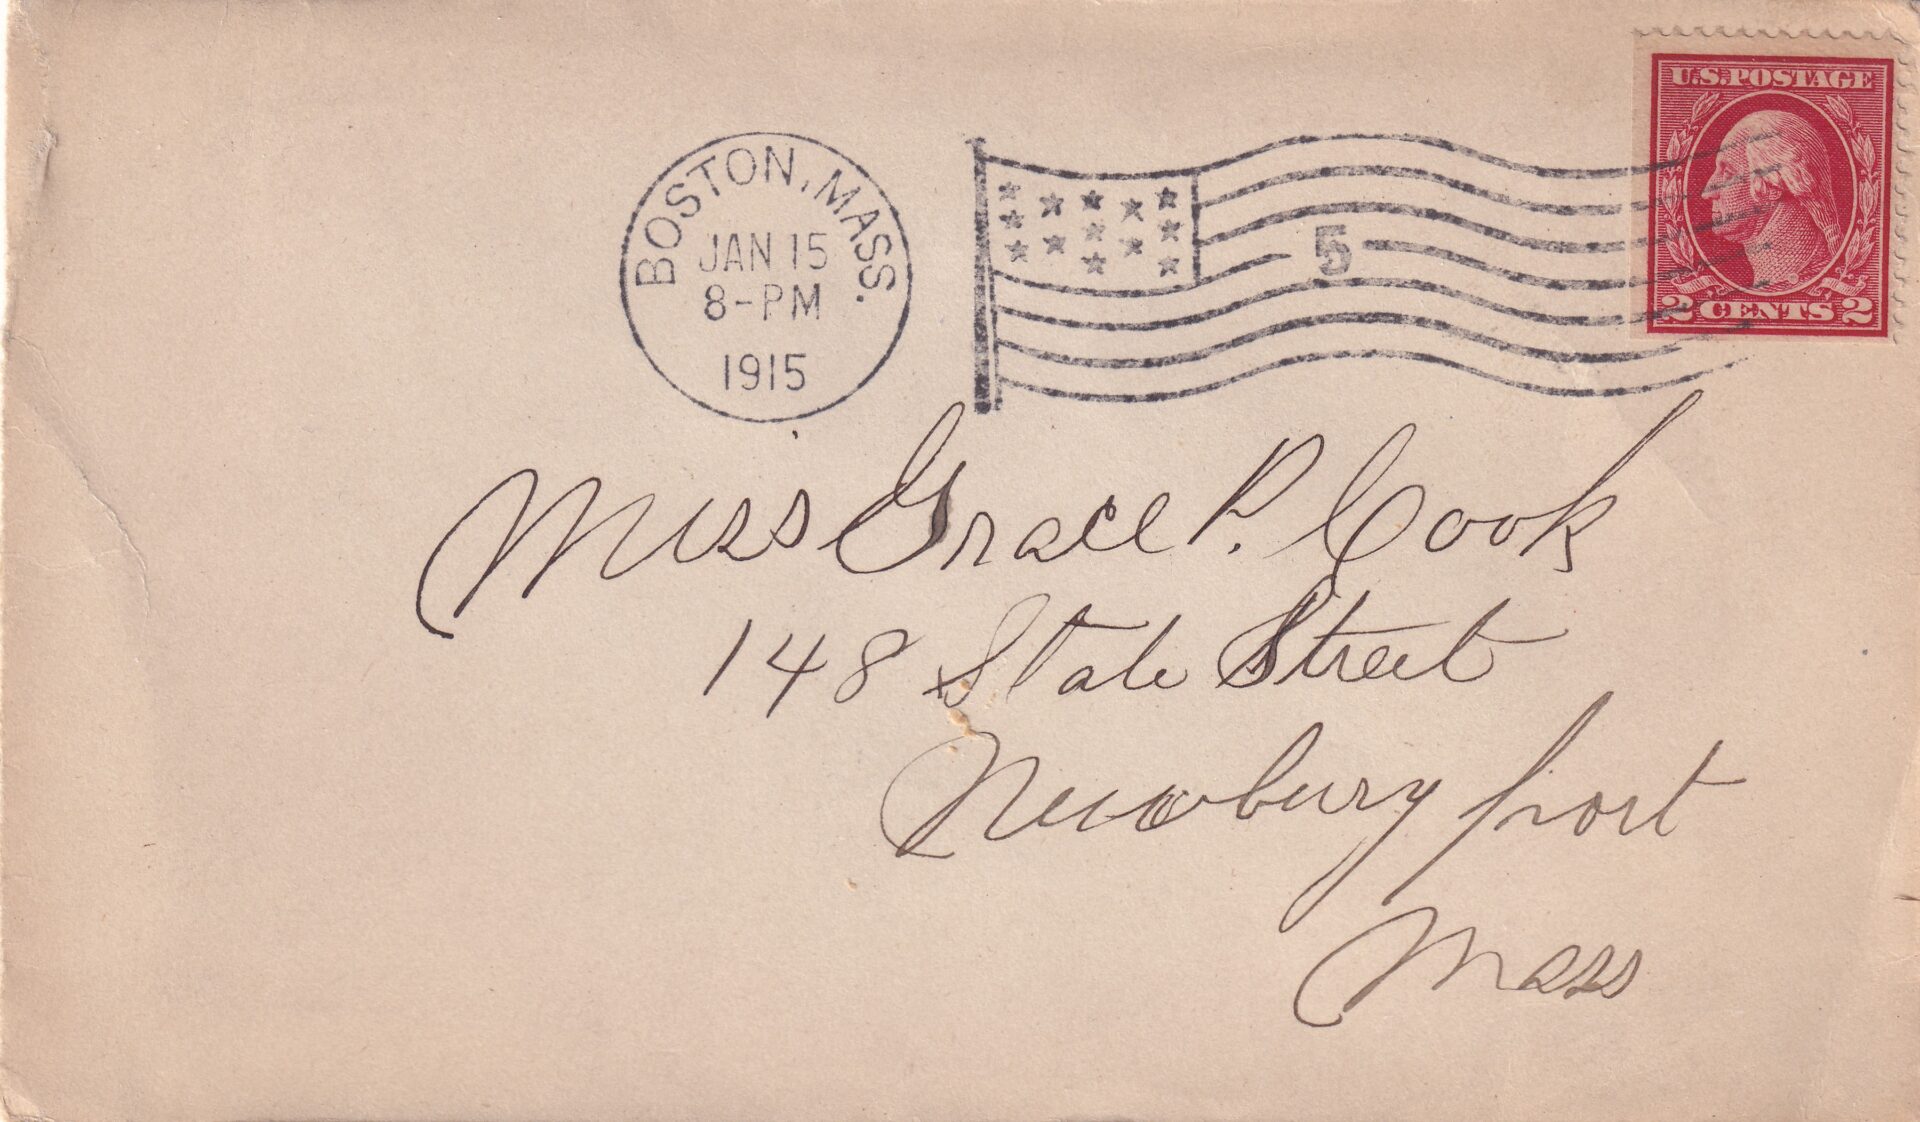 U.S. POSTAGE
2 CENTS 2
BOSTON, MASS.
JAN 15
8-PM
1915
5
Miss Grace P. Cook
148 State Street
Newburyport
Mass